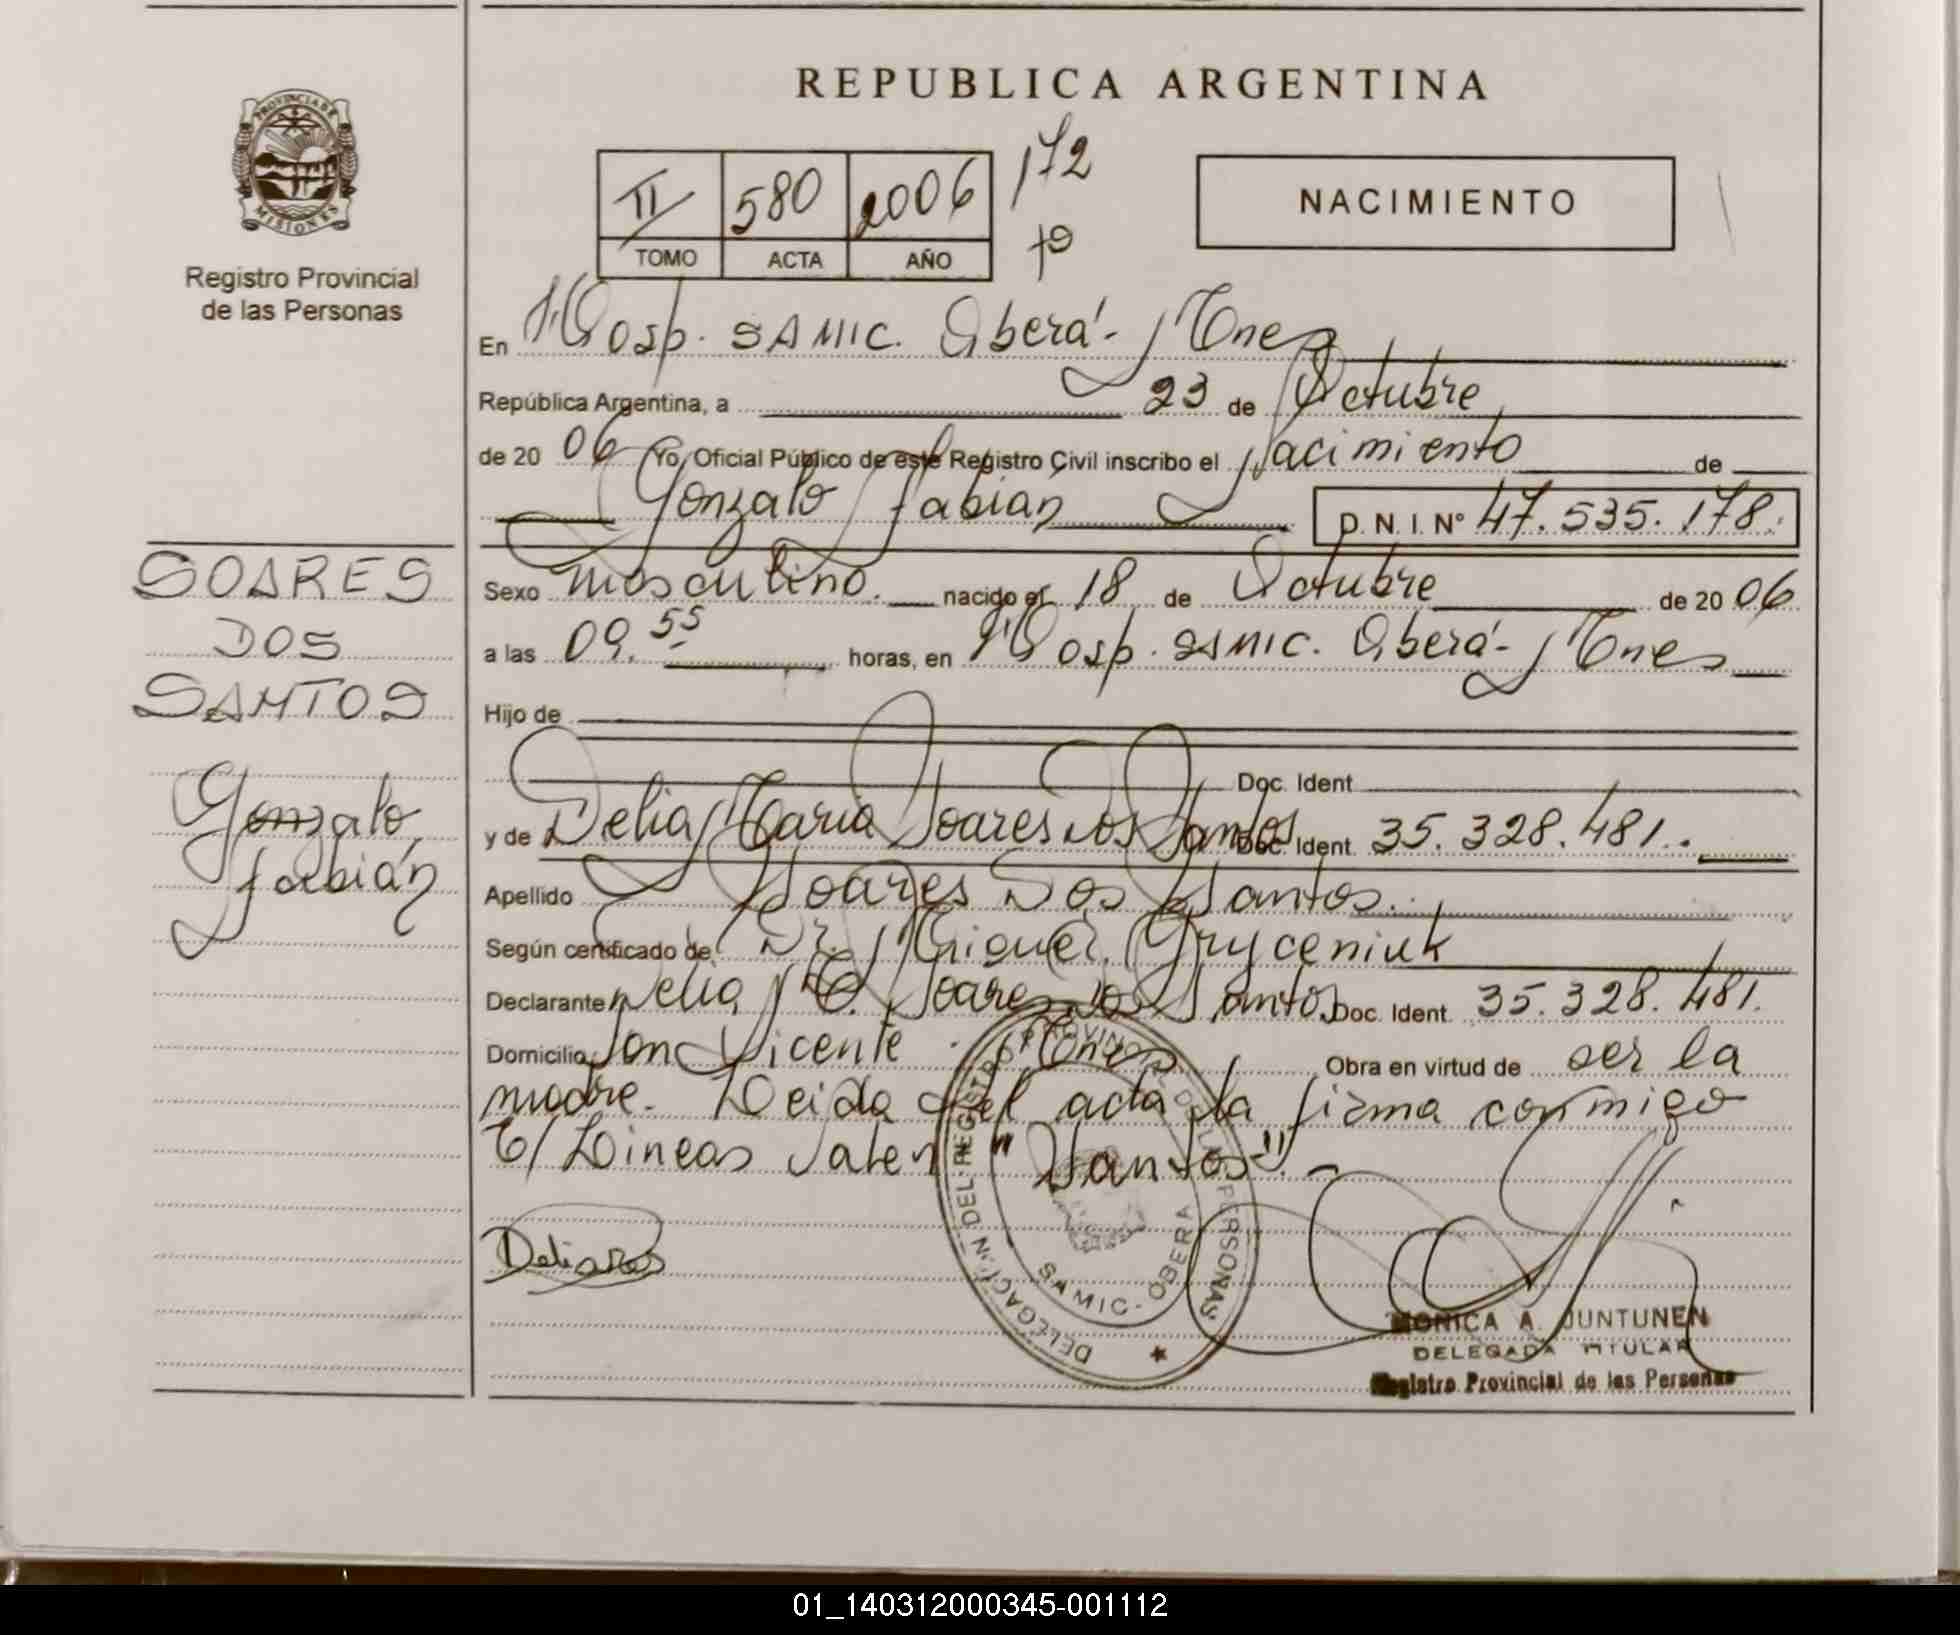 REPUBLICA ARGENTINA
PROVINCIA DE
MISIONES
Registro Provincial
de las Personas
II 580 2006 172
TOMO ACTA AÑO
NACIMIENTO
En Hosp. SAMIC. Oberá - Mnes
República Argentina, a 23 de Octubre
de 20 06 Yo, Oficial Público de este Registro Civil inscribo el Nacimiento de
Gonzalo Fabian D.N.I. Nº 47.535.178.
SOARES
DOS
SANTOS
Gonzalo
Fabián
Sexo masculino. nacido el 18 de Octubre de 20 06
a las 09.55 horas, en Hosp. SAMIC. Oberá - Mnes
Hijo de
Doc. Ident
y de Delia Maria Soares Dos Santos Doc. Ident. 35.328.481.
Apellido Soares Dos Santos.
Según certificado de Dr. Miguel Gryceniuk
Declarante Delia M. Soares Dos Santos Doc. Ident. 35.328.481.
Domicilio San Vicente - Mnes Obra en virtud de ser la
madre. Leida el acta la firma conmigo
E/ Lineas Valen "Santos". -
DELEGACIÓN DEL REGISTRO PROVINCIAL DE LAS PERSONAS
SAMIC - OBERA
MONICA A. JUNTUNEN
DELEGADA TITULAR
Registro Provincial de las Personas
01_140312000345-001112